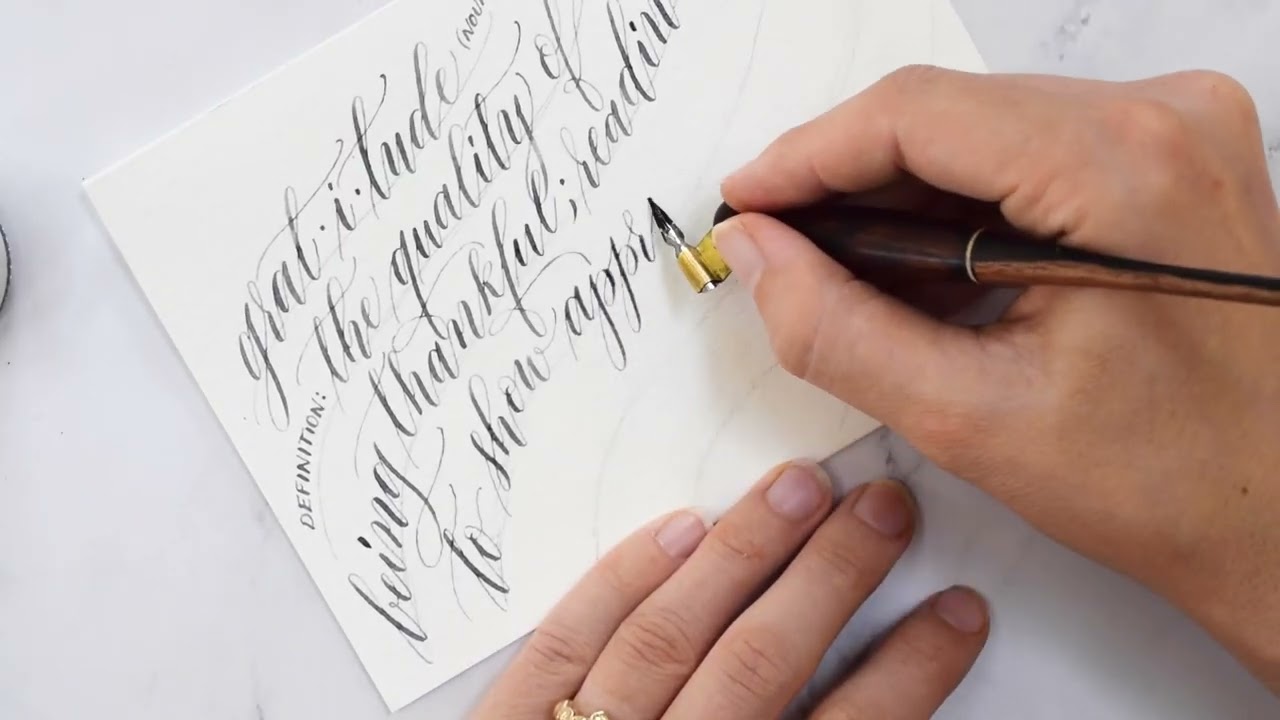 grat·i·tude (NOUN
DEFINITION: the quality of
being thankful; readin
to show appr